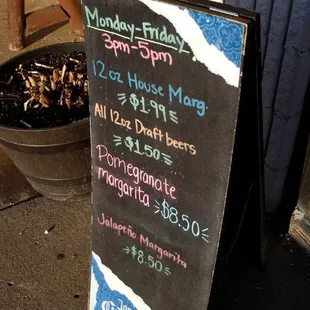 Monday-Friday
3pm-5pm
12oz House Marg.
$1.99
All 12oz Draft beers
$1.50
Pomegranate
margarita $8.50
Jalapeño Margarita
$8.50